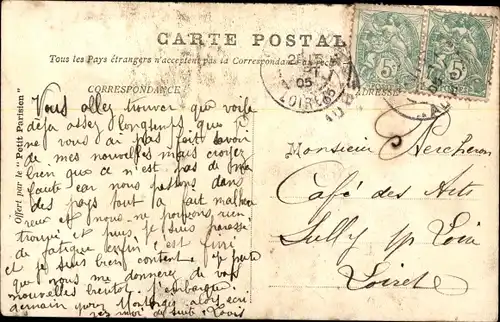 CARTE POSTALE
Tous les Pays étrangers n'acceptent pas la Correspondance au recto
CORRESPONDANCE
ADRESSE
Offert par le "Petit Parisien"
Vous allez trouver que voila
deja assez longtemps que je
ne vous ai pas fait savoir
de mes nouvelles mais croyez
bien que ce n'est pas de ma
faute car nous passons dans
des pays tout a fait malheu
reux et nous ne pouvons rien
trouver et puis je suis paresse
de fatigue enfin c'est fini
et je suis bien content
que vous me donnerez de vos
nouvelles bientot j'embarque
demain pour Montargis alors ecri
vez moi de suite Louis
Monsieur Percheron
Café des Arts
Sully s/p Loire
Loiret
05
LOIRET
5c
5c